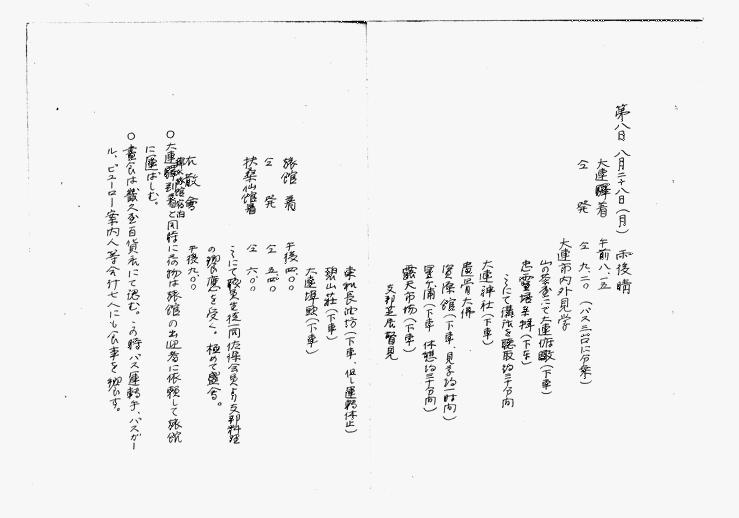 第八日 八月二十八日(月) 雨後晴
大連驛着 午前八、一五
仝 発 仝 九、二〇 (バス三台に分乗)
大連市内外見学
山の茶屋にて大連俯瞰(下車)
忠霊塔参拝(下車)
こゝにて講話を聴取約三十分間
大連神社(下車)
遺骨大佛
資源館(下車、見学約一時間)
星ヶ浦(下車 休憩約三十分間)
露天市場(下車)
支那芝居瞥見
東和長油坊(下車、但し運転休止)
碧山荘(下車)
大連埠頭(下車)
旅館 着 午後四、〇〇
仝 発 仝 五、四〇
扶桑仙館着 仝 六、〇〇
こゝにて校長先生一同佐保会員より支那料理
の饗應を受く。極めて盛会。
散會 午後九、〇〇
○大連驛到着と同時に荷物は旅館の出迎者に依頼して旅館
に運ばしむ。
○晝食は幾久屋百貨店にて認む。この時バス運轉手、バスガー
ル、ビューロー案内人等合計七人にも食事を饗す。